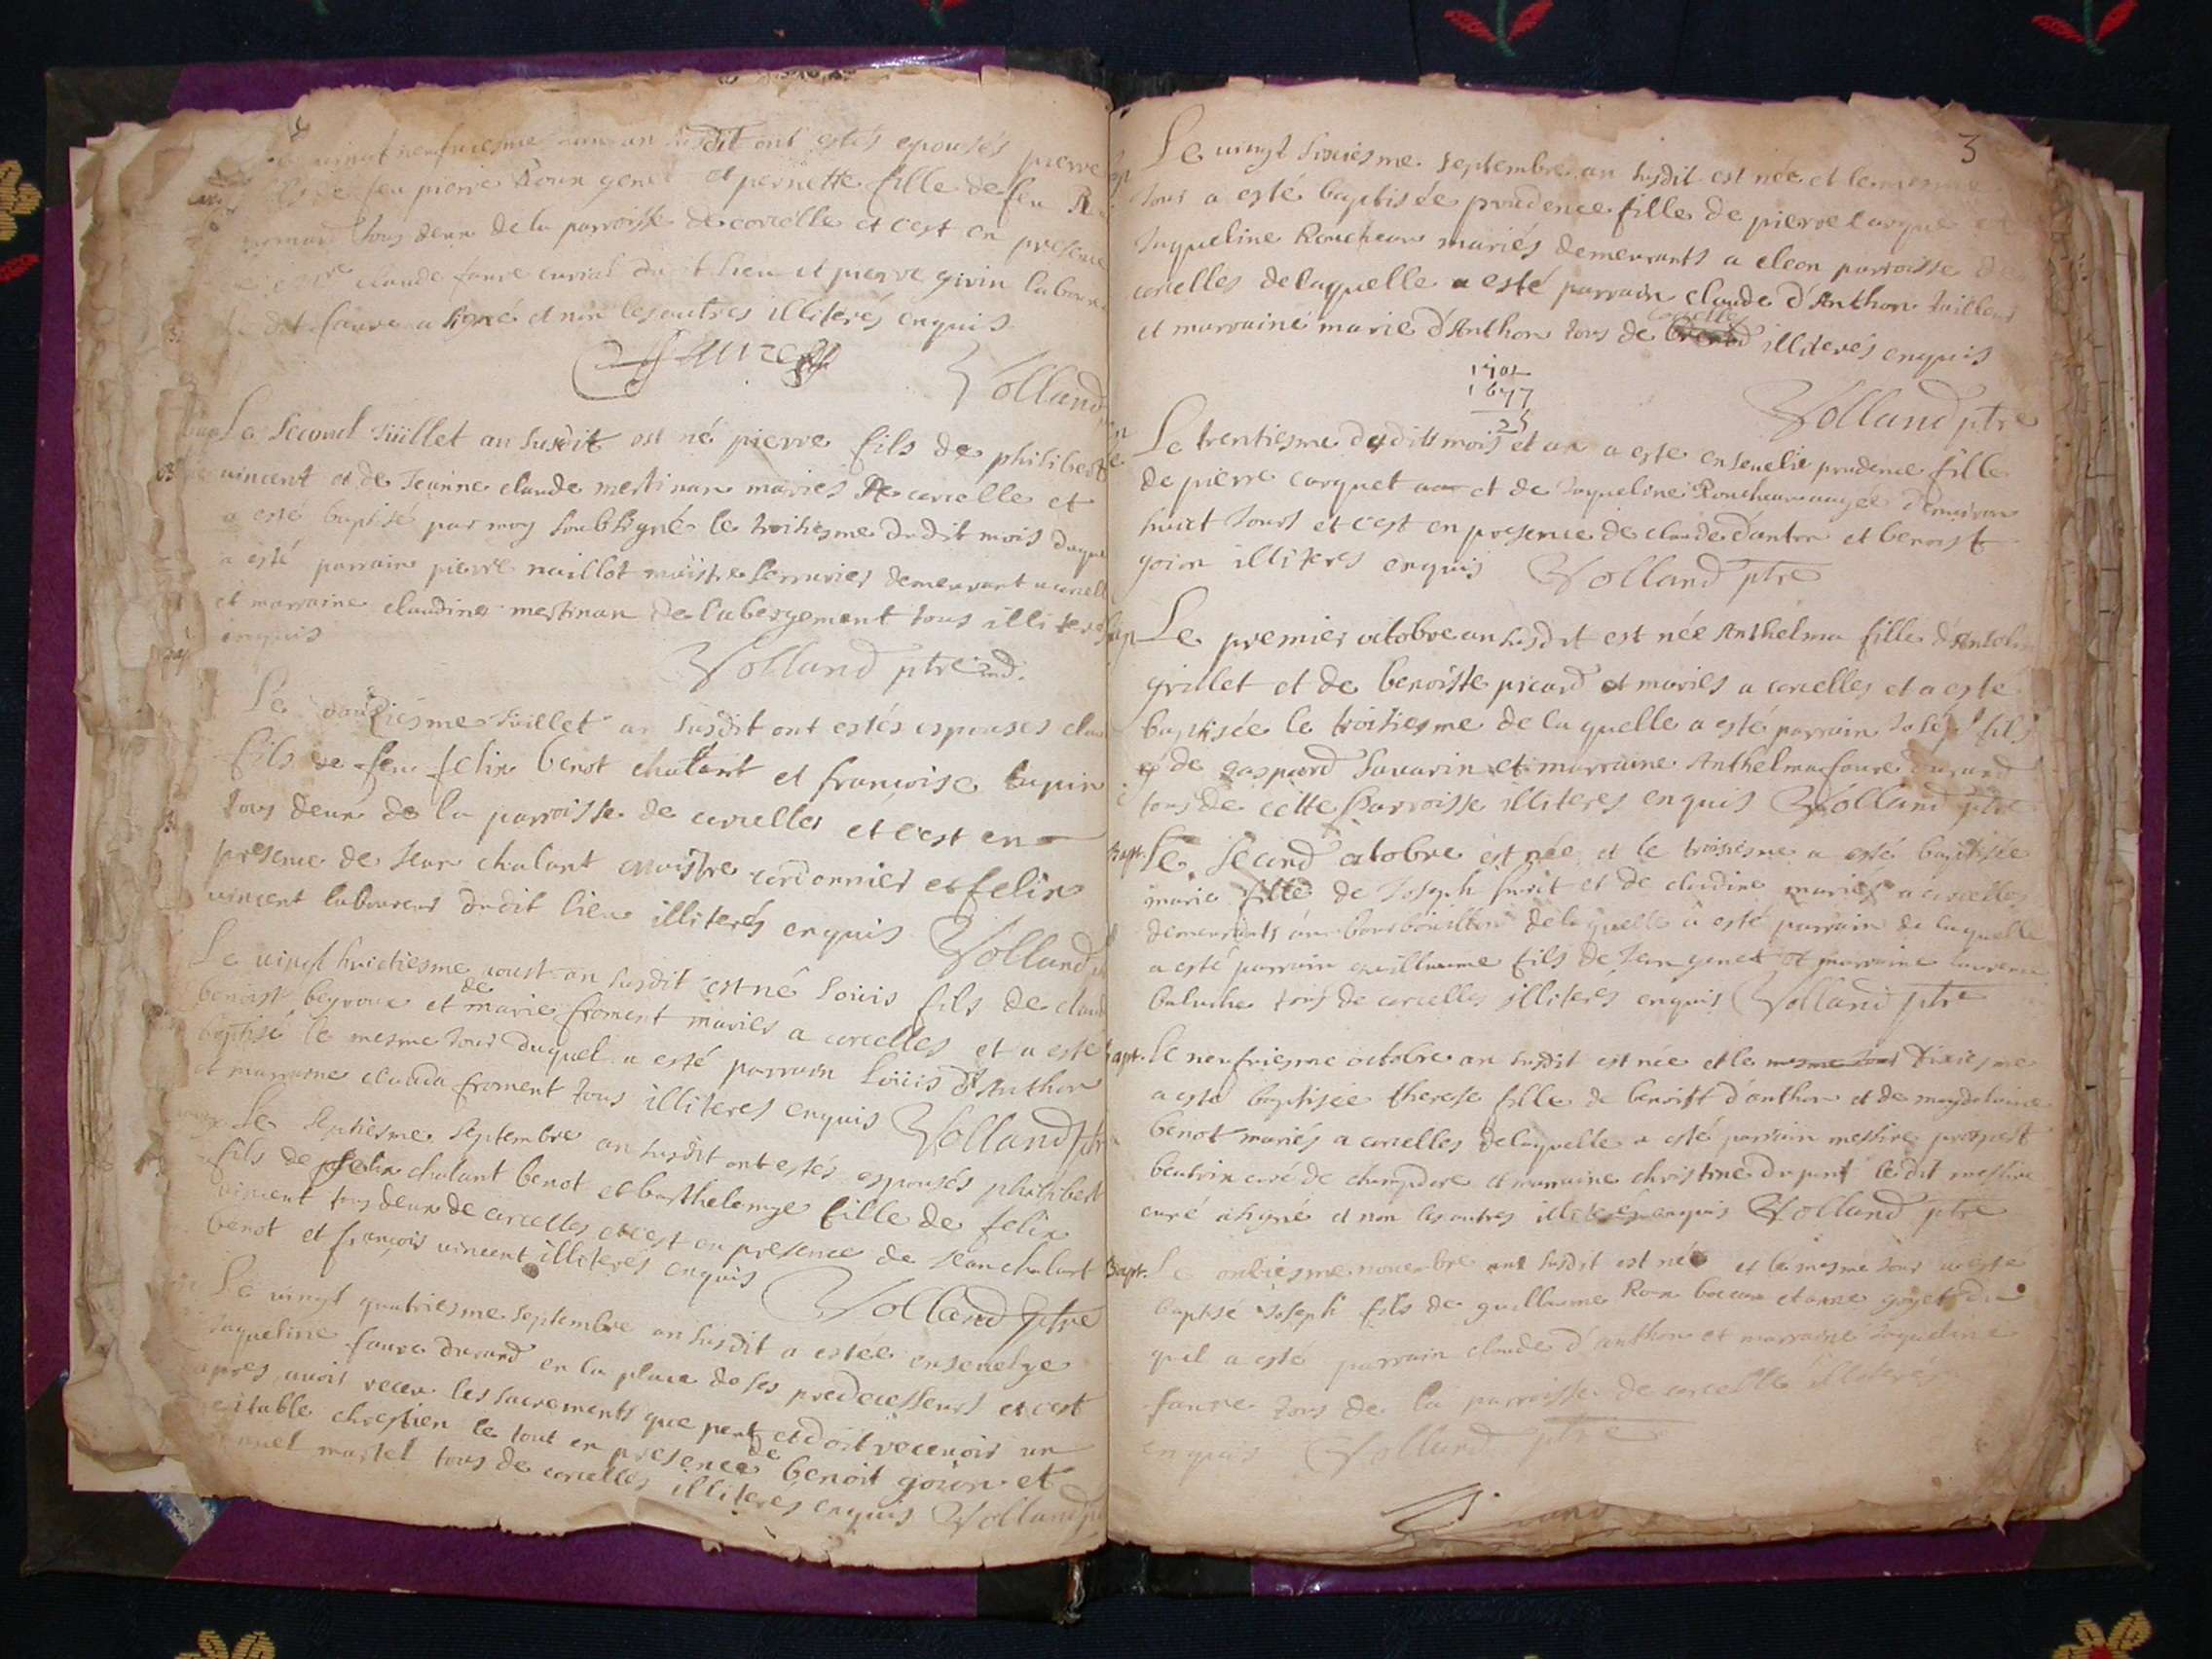 vingt neufiesme an susdit ont estés epousés pierre
fils de feu pierre Roux genet et pernette fille de feu
tous deux de la parroisse de corcelle et c'est en presence
claude faure curial dudit lieu et pierre givin
le dit faure a signé et non les autres illiterés enquis
Faure
Volland
Le second Jüillet an susdit est né pierre fils de philibert
vincent et de Jeanne claude mestinan mariés de corcelle et
a esté baptisé par moy soubsigné le troisiesme dudit mois duquel
a esté parrain pierre naillot maistre serrurier demeurant a
et marraine claudine mestinan de l'abergement tous illiterés
enquis
Volland ptre
Le Juillet an susdit ont estés espouses
fils de feu felix benot chalant et francoise tupin
tous deux de la parroisse de corcelles et c'est en
presence de Jean chalant maistre cordonnier et felix
vincent laboureur dudit lieu illiterés enquis Volland
Le vingt huictiesme aoust an susdit est né Loüis fils de
benoist beyroux et de marie froment mariés a corcelles et a esté
baptisé le mesme Jour duquel a esté parrain Loüis d'Anthon
et marraine clauda froment tous illiteres enquis Volland ptre
Le septiesme septembre an susdit ont estés espousés philibert
fils de felix chalant benot et barthelemye fille de felix
vincent tous deux de corcelles et c'est en presence de Jean chalant
benot et françois vincent illiterés enquis Volland ptre
Le vingt quatriesme septembre an susdit a estée ensevelye
Jaqueline faure durand en la place de ses predecesseurs et c'est
apres avoir receu les sacrements que peut et doit recevoir un
veritable chrestien le tout en presence de benoit goion et
martel tous de corcelles illiterés enquis Volland
3
Le vingt sixiesme septembre an susdit est née et le mesme
Jour a esté baptisée prudence fille de pierre carquet et
Jaqueline Roucheux mariés demeurants a cleon parroisse de
corcelles de laquelle a esté parrain claude d'Anthon tailleur
et marraine marie d'Anthon tous de corcelles illiterés enquis
1702
1677
25
Volland ptre
Le trentiesme dudit mois et an a esté ensevelie prudence fille
de pierre carquet et de Jaqueline Roucheux aagée d'environ
huict Jours et c'est en presence de claude d'anton et benoist
goion illiteres enquis Volland ptre
Le premier octobre an susdit est née Anthelma fille d'
grillet et de benoiste picard et mariés a corcelles et a esté
baptisée le troisiesme de laquelle a esté parrain Joseph fils
de gaspard savarin et marraine Anthelma faure durand
tous de cette Parroisse illiteres enquis Volland ptre
Bapt. Le second octobre est née et le troisiesme a esté baptisée
marie fille de Joseph et de claudine mariés a corcelles
demeurants de laquelle a esté parrain de laquelle
a esté parrain guillaume fils de Jean genet et marraine
tous de corcelles illiteres enquis Volland ptre
Bapt. Le neufviesme octobre an susdit est née et le mesme Jour dixiesme
a esté baptisée therese fille de benoist d'anthon et de magdelaine
benot mariés a corcelles de laquelle a esté parrain messire prospert
beatrix curé de champdore et marraine christine dupont le dit messire
curé a signé et non les autres illiterés enquis Volland ptre
Bapt. Le onziesme novembre an susdit est né et le mesme Jour a esté
baptisé Joseph fils de guillaume Roux et anne goyet du
quel a esté parrain claude d'anthon et marraine Jaqueline
faure tous de la parroisse de corcelle illiterés
enquis Volland ptre